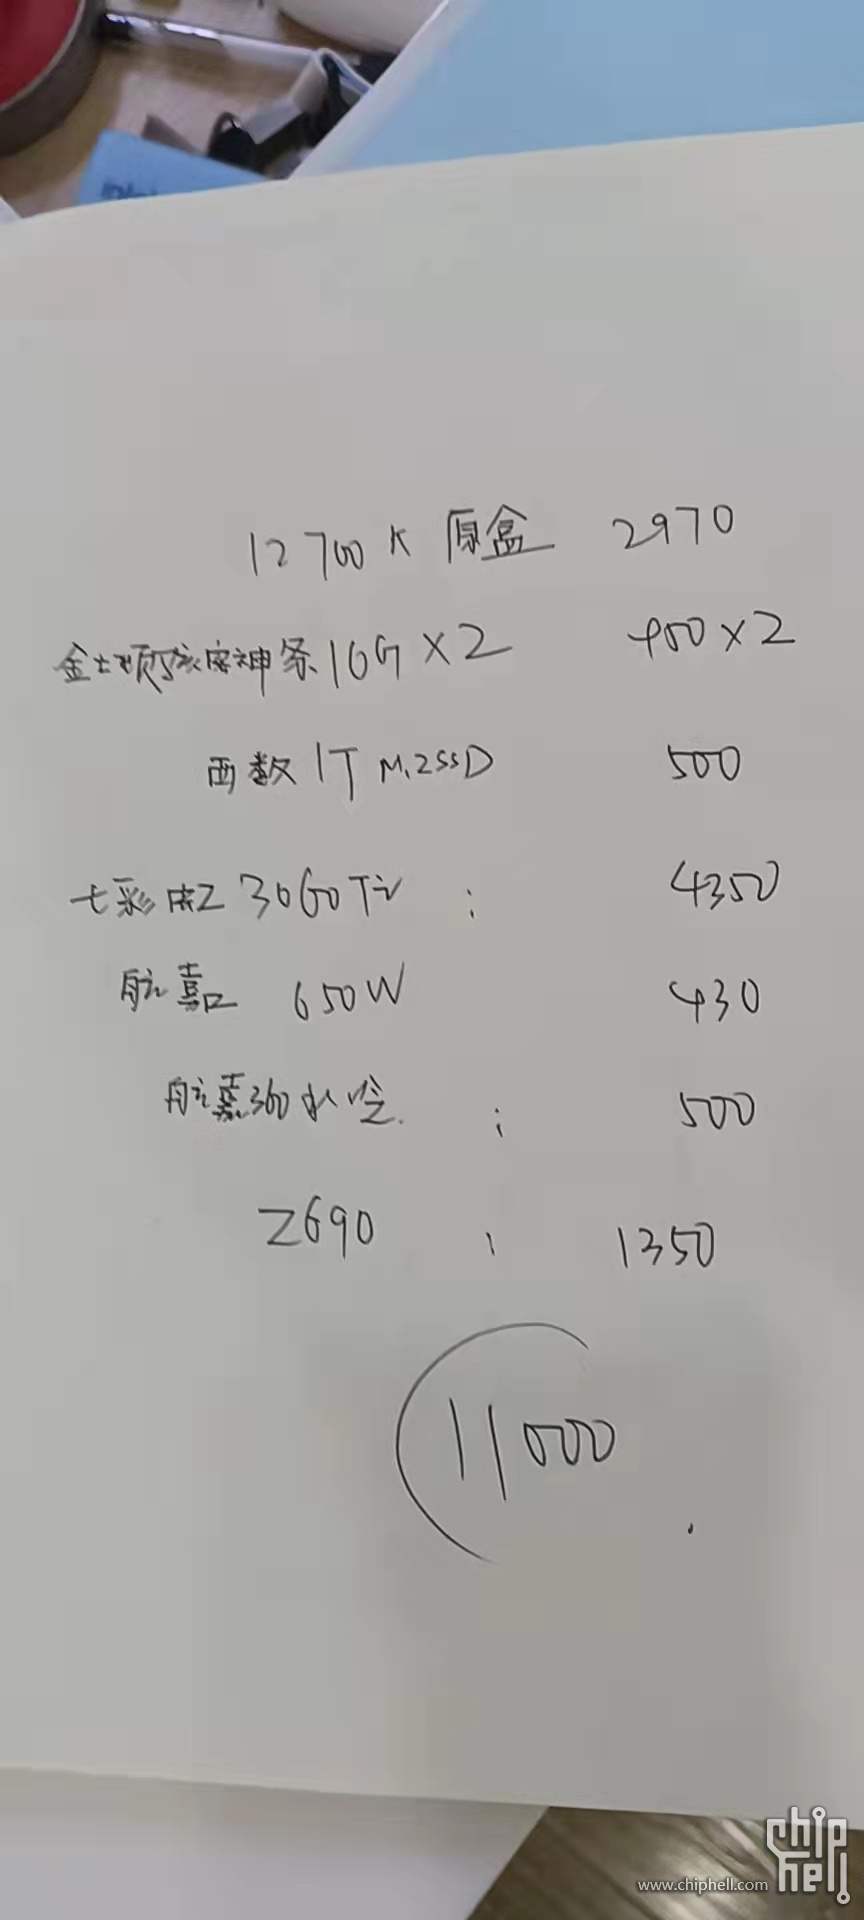 12700K 原盒 2970
金士顿骇客神条 16G×2 450×2
西数 1T M.2SSD 500
七彩虹 3060Ti : 4350
航嘉 650W 430
航嘉360水冷. : 500
Z690 : 1350
11000
chip hell
www.chiphell.com